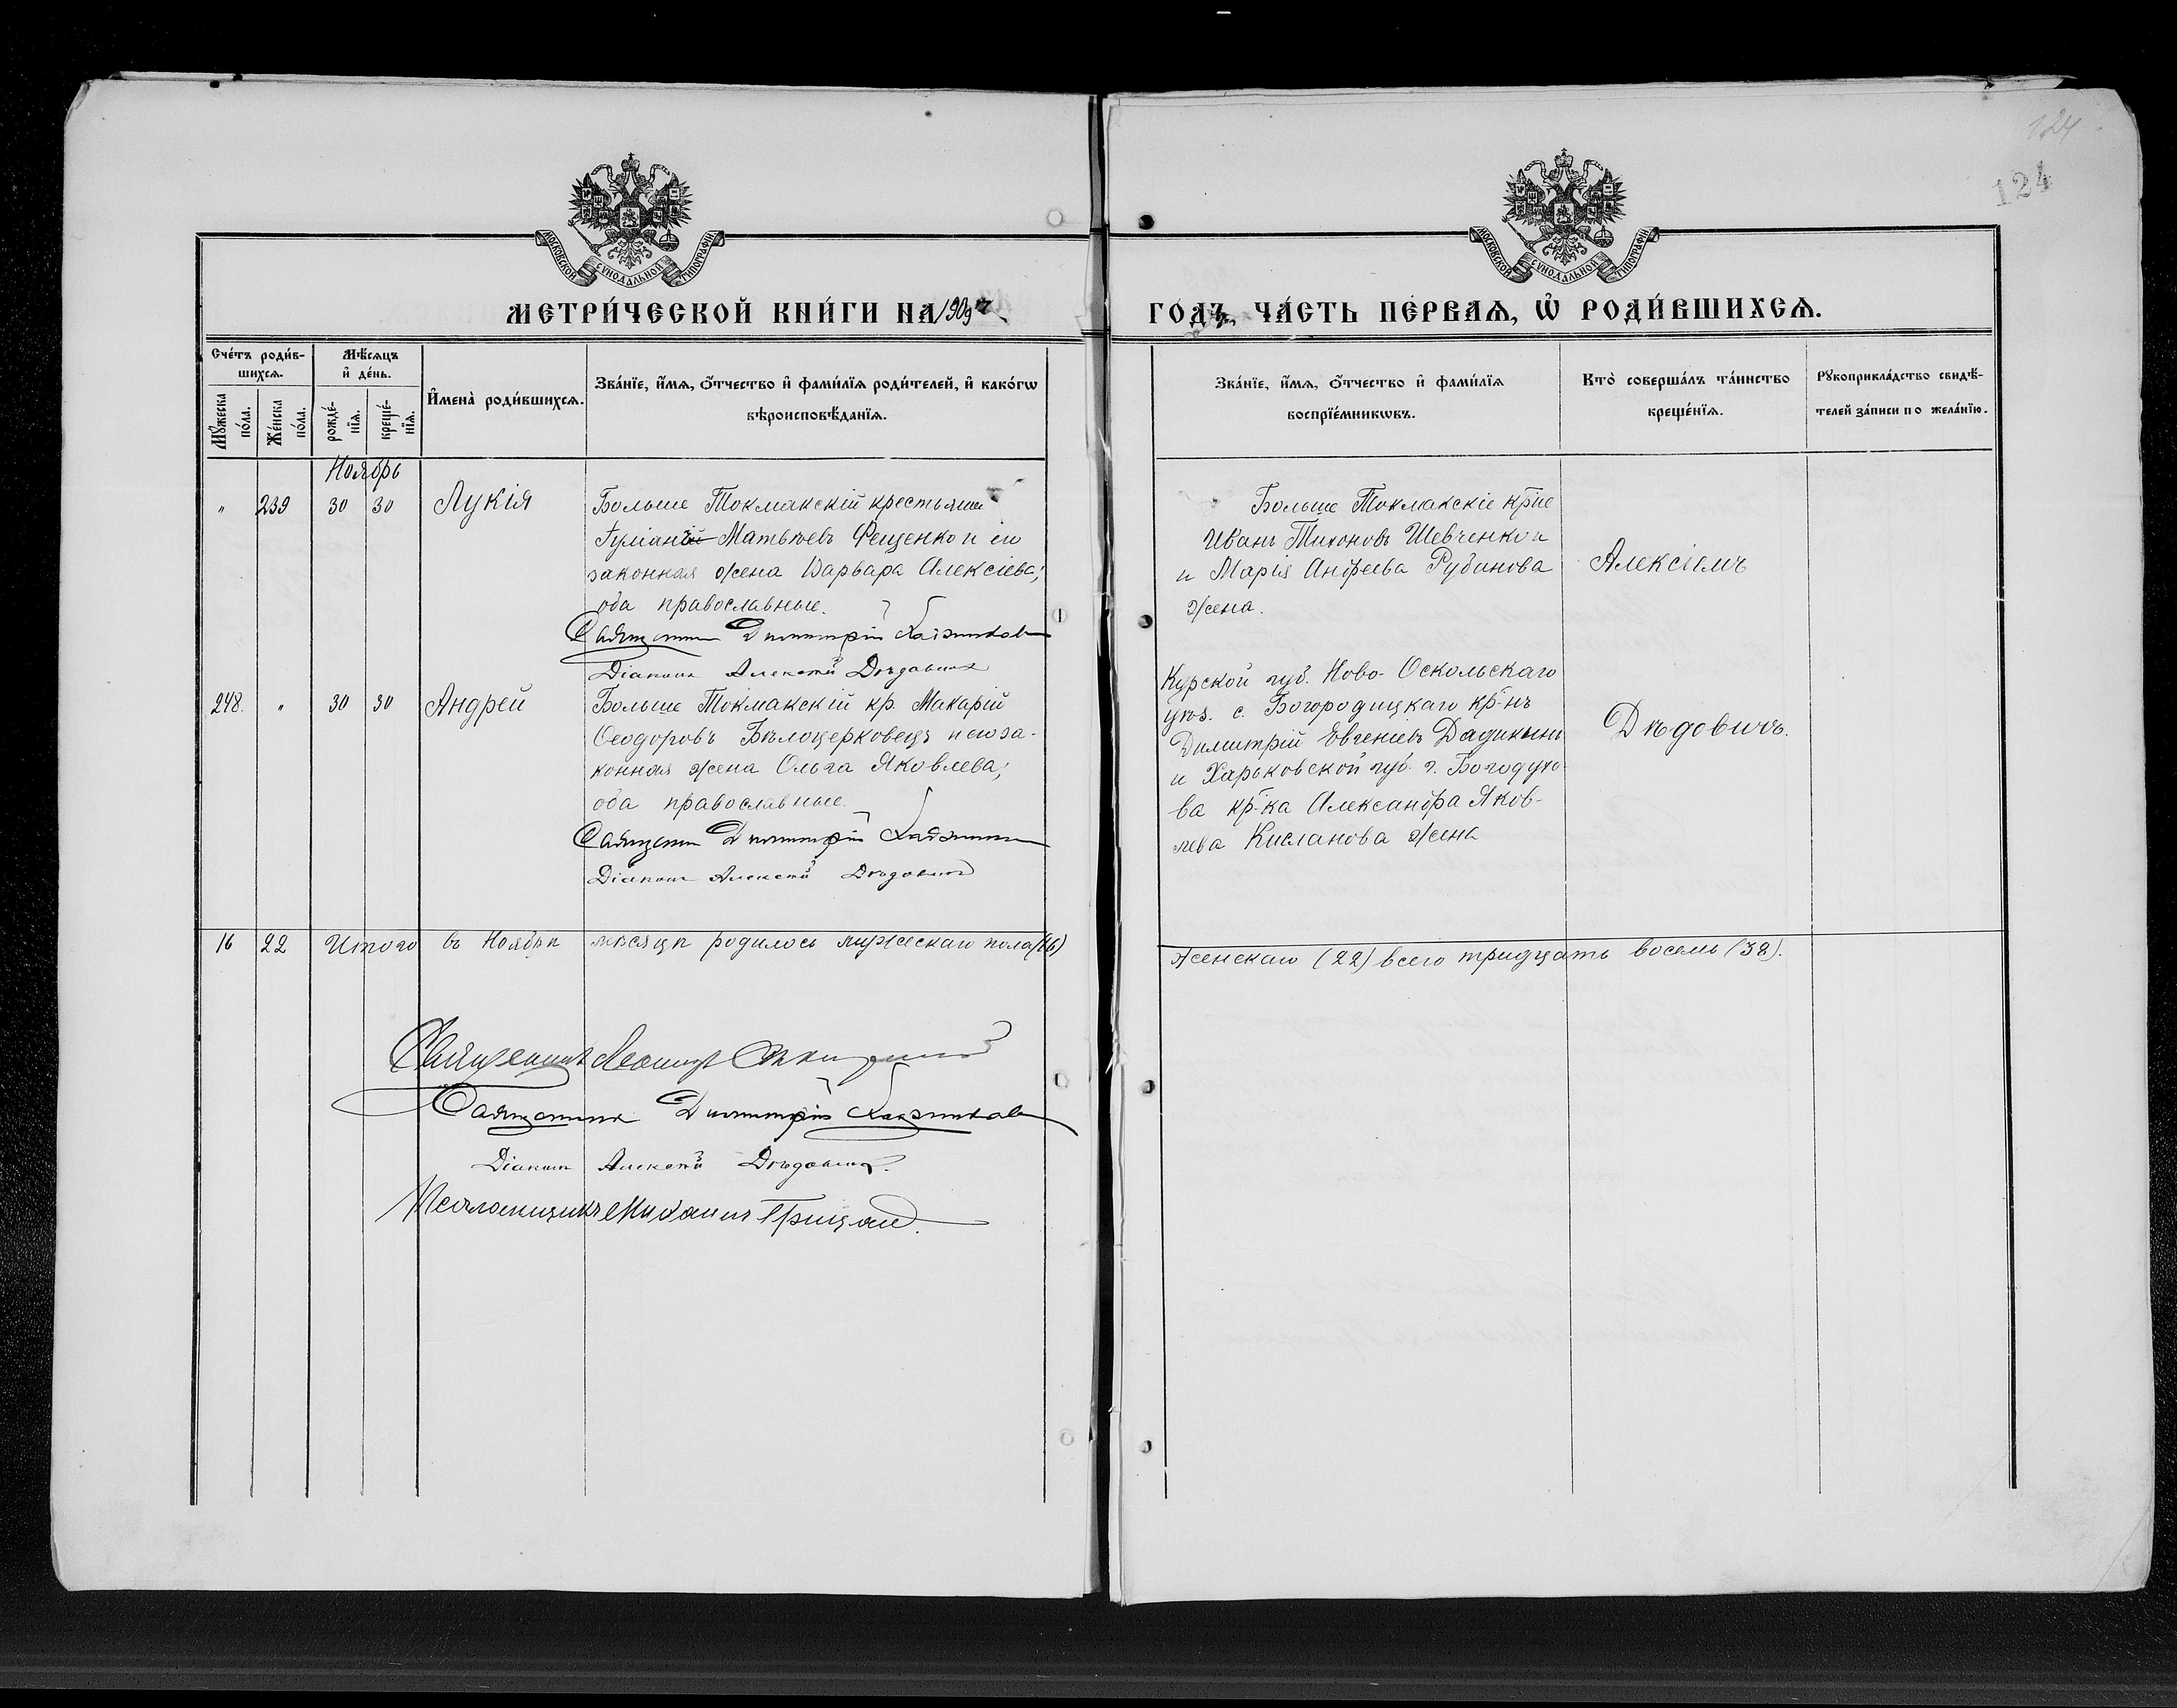 124
124
МОСКОВСКОЙ СѴНОДАЛЬНОЙ ТИПОГРАФІИ
МОСКОВСКОЙ СѴНОДАЛЬНОЙ ТИПОГРАФІИ
МЕТРИ́ЧЕСКОЙ КНИ́ГИ НА 1909 ГОДЪ, ЧА́СТЬ ПЕ́РВАѦ, Ѡ҆ РОДИ́ВШИХСѦ.
Сче́тъ роди́в-
шихсѧ.
Мꙋ́жеска по́ла.
Же́нска по́ла.
Мѣ́сѧцъ
и҆ де́нь.
рожде́-
нїѧ.
креще́-
нїѧ.
И҆мена̀ роди́вшихсѧ.
Зва́нїе, и҆́мѧ, ѻ҆́тчество и҆ фами́лїѧ роди́телей, и҆ како́гѡ
вѣроисповѣ́данїѧ.
Зва́нїе, и҆́мѧ, ѻ҆́тчество и҆ фами́лїѧ
воспрїе́мникѡвъ.
Кто̀ соверша́лъ та́инство
креще́нїѧ.
Рꙋкоприкла́дство свидѣ́-
телей за́писи по жела́нїю.
Ноябрь
" 239 30 30 Лукія
Больше Токмакскій крестьянин
Матвѣевъ Фещенко и его
законная жена Варвара Алексіева;
оба православные.
Священникъ Димитрій
Діаконъ Алексѣй Дѣдовичъ
Больше Токмакскіе кр̅не
Иванъ Тихоновъ Шевченко и
и Марія Андреева Рубанова
жена.
Алексіемъ
248. " 30 30 Андрей
Больше Токмакскій кр. Макарій
Ѳеодоровъ Бѣлоцерковецъ и его за-
конная жена Ольга Яковлева;
оба православные.
Священникъ Димитрій
Діаконъ Алексѣй Дѣдовичъ
Курской губ. Ново-Оскольскаго
уѣз. с. Богородицкаго кр-нъ
Димитрій Евгеніевъ Дадыкинъ
и Харьковской губ. г. Богодухо-
ва кр-ка Александра Яков-
лева Кисланова жена
Дѣдовичъ.
16 22 Итого въ Ноябрѣ мѣсяцѣ родилось мужескаго пола (16)
женскаго (22) всего тридцать восемь (38).
Священникъ Леонидъ
Священникъ Димитрій
Діаконъ Алексѣй Дѣдовичъ.
Псаломщикъ Михаилъ Грицай.